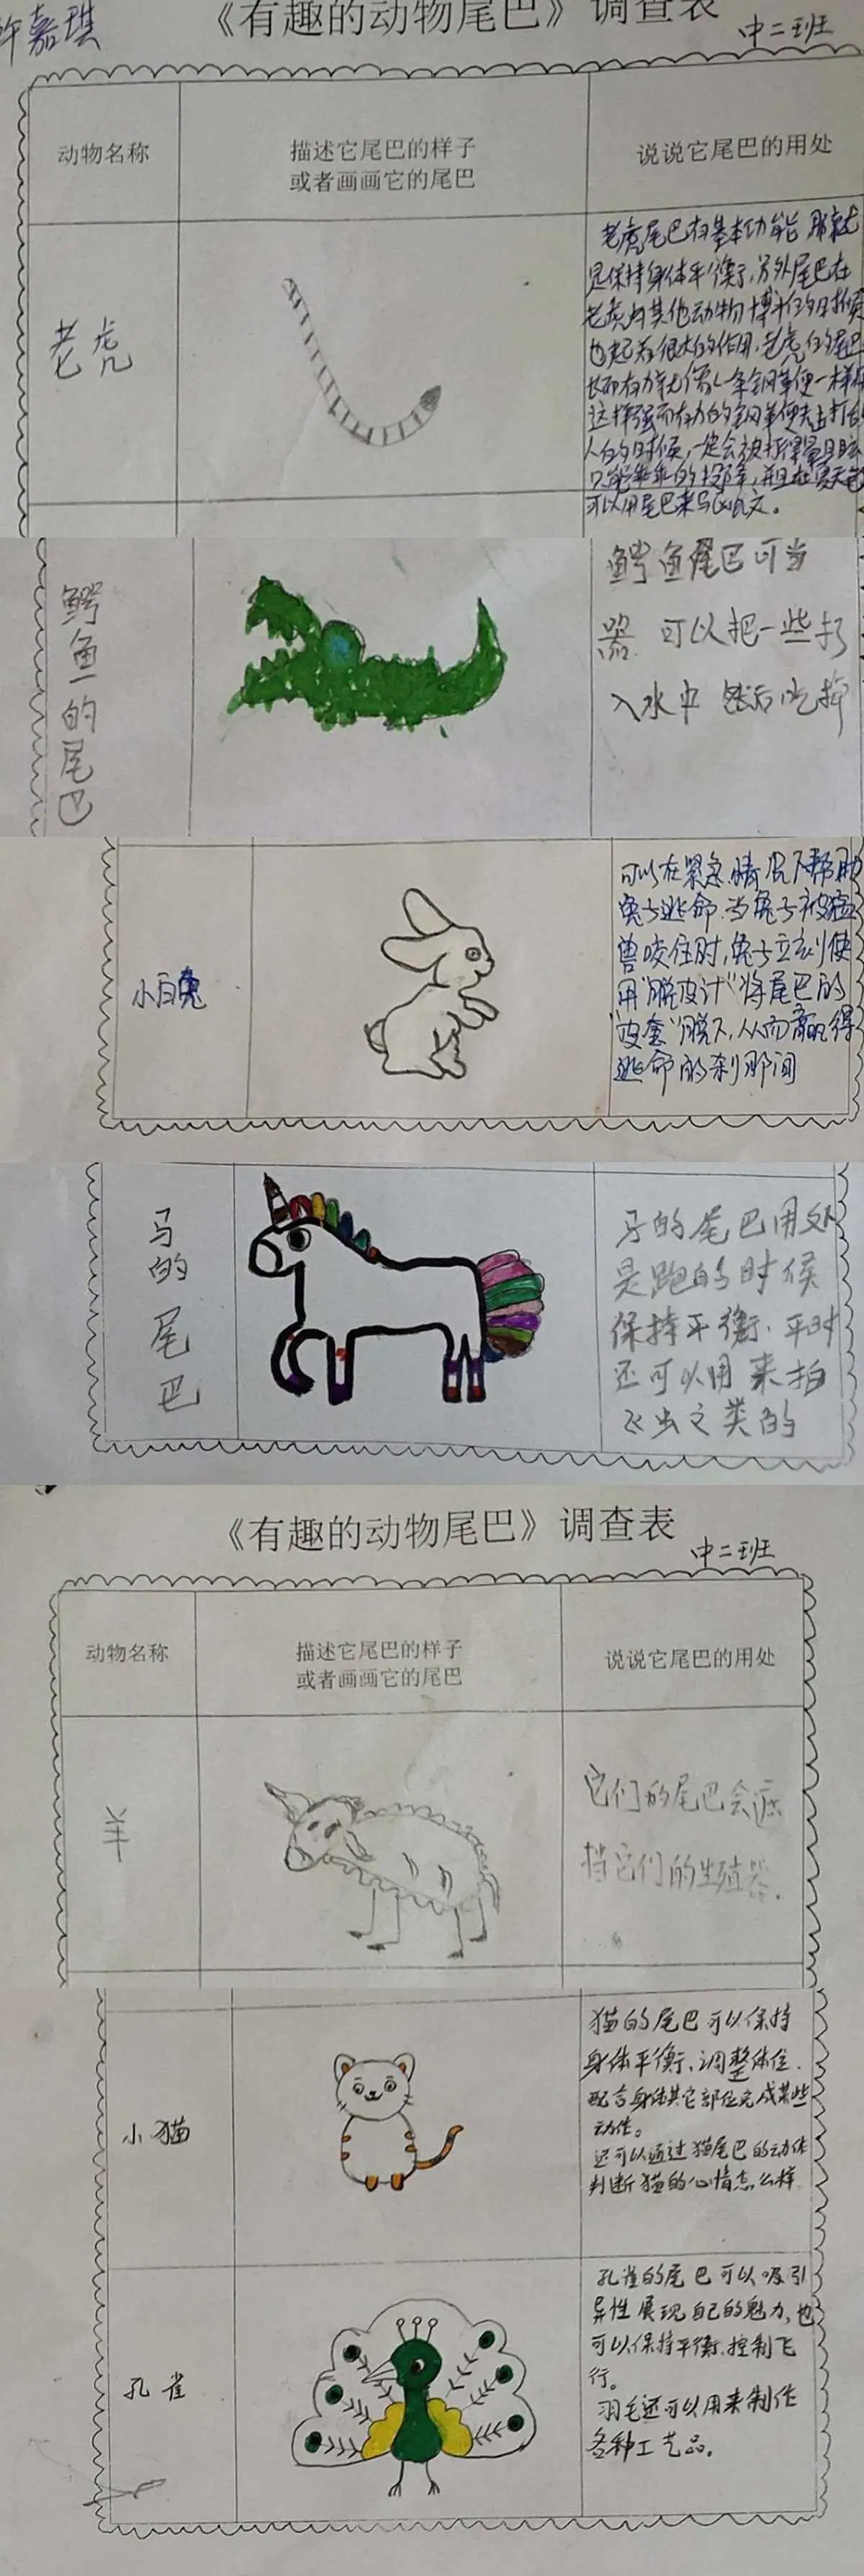 许嘉琪
《有趣的动物尾巴》调查表
中二班
动物名称
描述它尾巴的样子
或者画画它的尾巴
说说它尾巴的用处
老虎
老虎尾巴有基本功能 那就
是保持身体平衡,另外尾巴在
老虎与其他动物搏斗的时候
也起着很大的作用,老虎的尾巴
长而有力就像一条钢鞭一样
这样强而有力的钢鞭去击打
人的时候,一定会被打得晕目眩
只能乖乖的投降,并且在夏天
可以用尾巴来驱蚊。
鳄鱼的尾巴
鳄鱼尾巴可当
器 可以把一些打
入水中 然后吃掉
小白兔
可以在紧急情况下帮助
兔子逃命.当兔子被猛
兽咬住时,兔子立刻使
用“脱皮计”将尾巴的
“皮套”脱下,从而赢得
逃命的刹那间
马的尾巴
马的尾巴用处
是跑的时候
保持平衡.平时
还可以用来拍
飞虫之类的
《有趣的动物尾巴》调查表
中二班
动物名称
描述它尾巴的样子
或者画画它的尾巴
说说它尾巴的用处
羊
它们的尾巴会遮
挡它们的生殖器.
小猫
猫的尾巴可以保持
身体平衡、调整体位.
配合身体其它部位完成某些
动作。
还可以通过猫尾巴的动作
判断猫的心情怎么样
孔雀
孔雀的尾巴可以吸引
异性展现自己的魅力,也
可以保持平衡.控制飞
行。
羽毛还可以用来制作
各种工艺品。